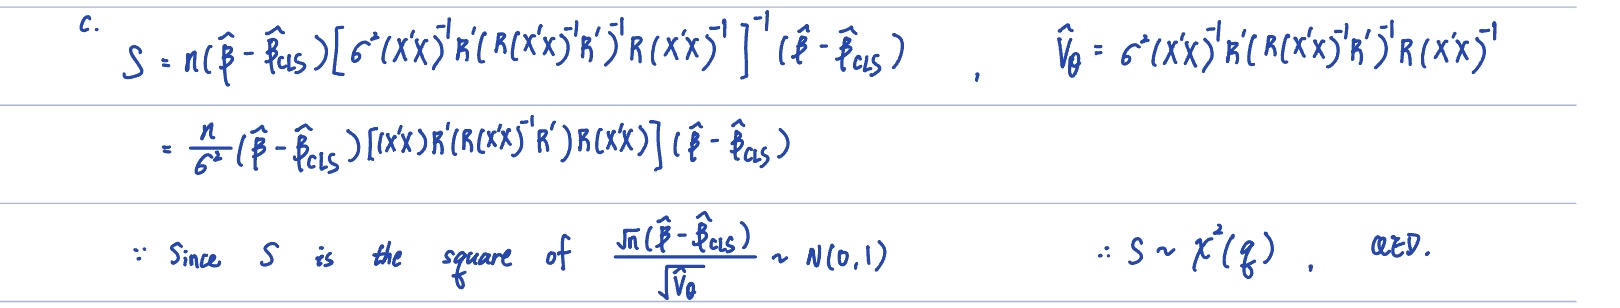 c. S = n(β̂ - β̂_CLS)[σ²(X'X)⁻¹R'(R(X'X)⁻¹R')⁻¹R(X'X)⁻¹]⁻¹(β̂ - β̂_CLS) , V̂_θ = σ²(X'X)⁻¹R'(R(X'X)⁻¹R')⁻¹R(X'X)⁻¹
= n/σ² (β̂ - β̂_CLS)[(X'X)R'(R(X'X)⁻¹R')R(X'X)](β̂ - β̂_CLS)
∵ Since S is the square of √n(β̂ - β̂_CLS)/√V̂_θ ~ N(0,1) ∴ S ~ χ²(q) , QED.